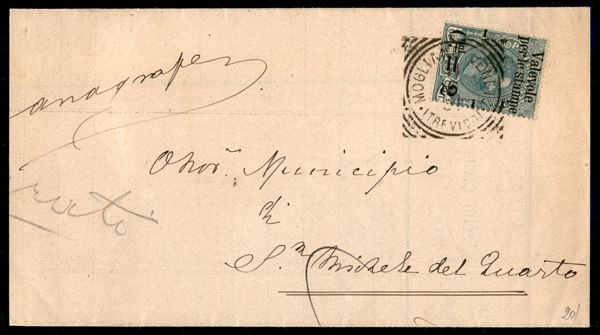 Valevole
per le stampe
MOGLIANO VENETO
(TREVISO)
anagrafe
Onor. Municipio
di
S.n Michele del Quarto
20/